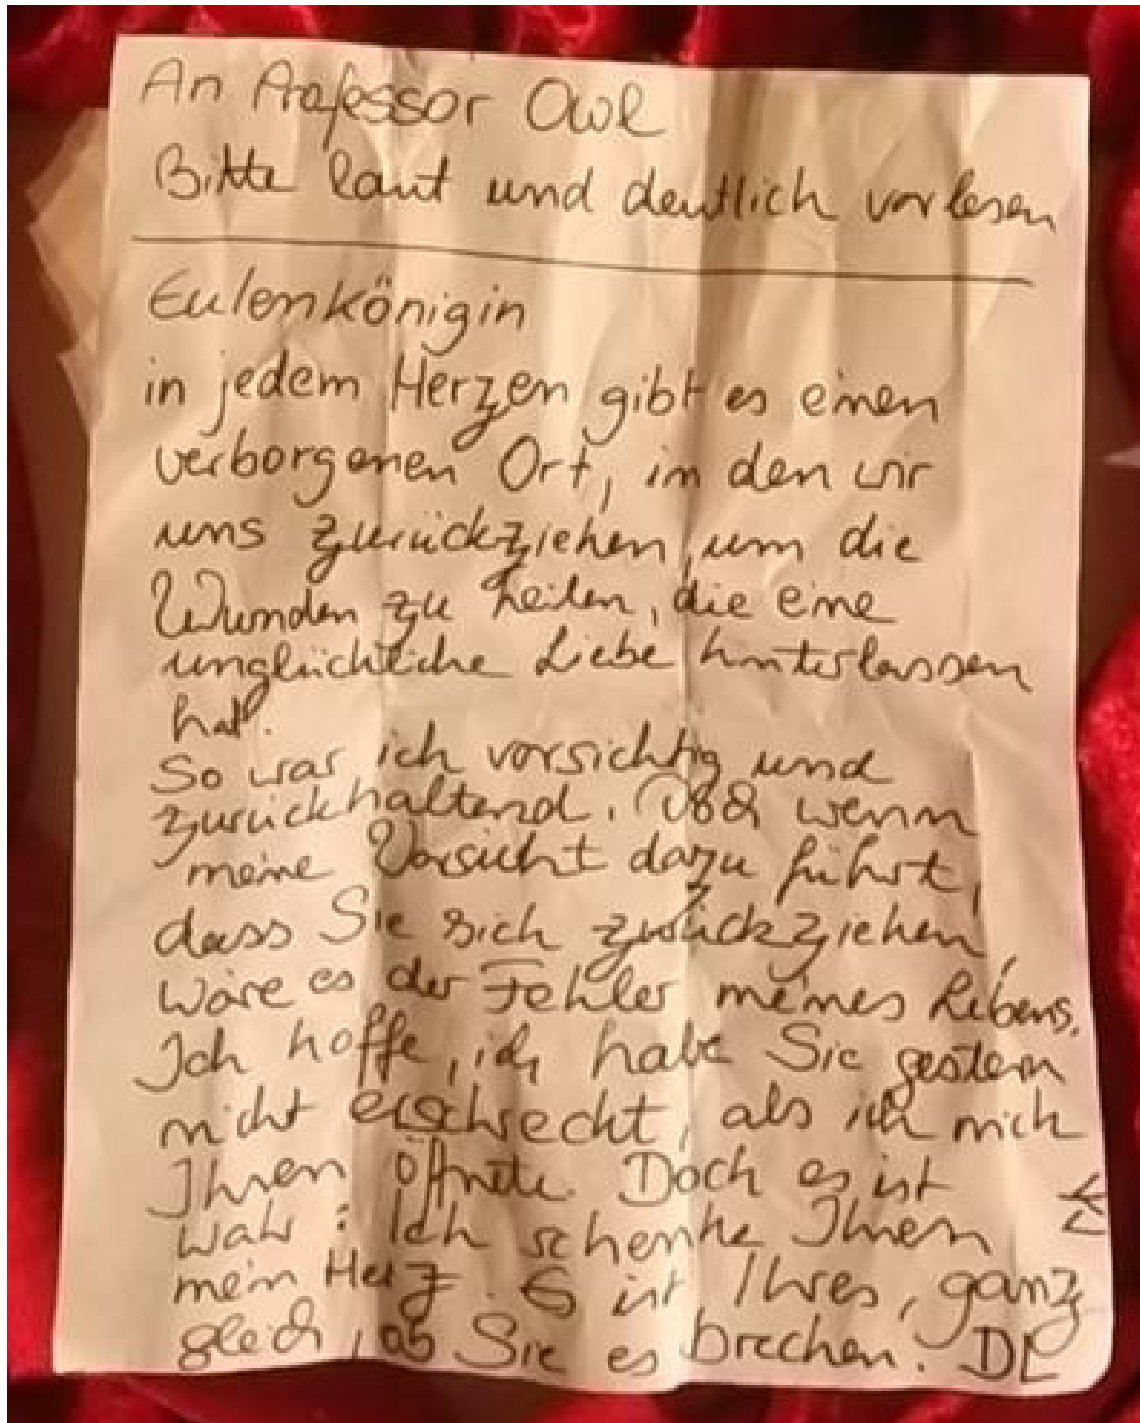 An Professor Owl
Bitte laut und deutlich vorlesen
Eulenkönigin
in jedem Herzen gibt es einen
verborgenen Ort, in den wir
uns zurückziehen, um die
Wunden zu heilen, die eine
unglückliche Liebe hinterlassen
hat.
So war ich vorsichtig und
zurückhaltend. Doch wenn
meine Vorsicht dazu führt,
dass Sie sich zurückziehen,
wäre es der Fehler meines Lebens.
Ich hoffe, ich habe Sie gestern
nicht erschreckt, als ich mich
Ihnen öffnete. Doch es ist
wahr: Ich schenke Ihnen
mein Herz. Es ist Ihres, ganz
gleich, ob Sie es brechen. DL